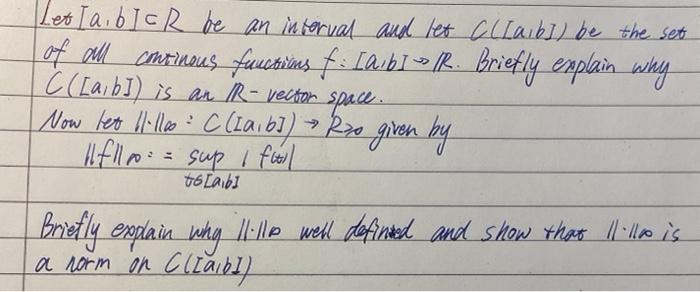 Let [a,b]⊂R be an interval and let C([a,b]) be the set
of all continous functions f: [a,b]→R. Briefly explain why
C([a,b]) is an R-vector space.
Now let ||·||∞: C([a,b]) → R≥0 given by
||f||∞ : = sup |f(t)|
t∈[a,b]
Briefly explain why ||·||∞ well defined and show that ||·||∞ is
a norm on C([a,b])